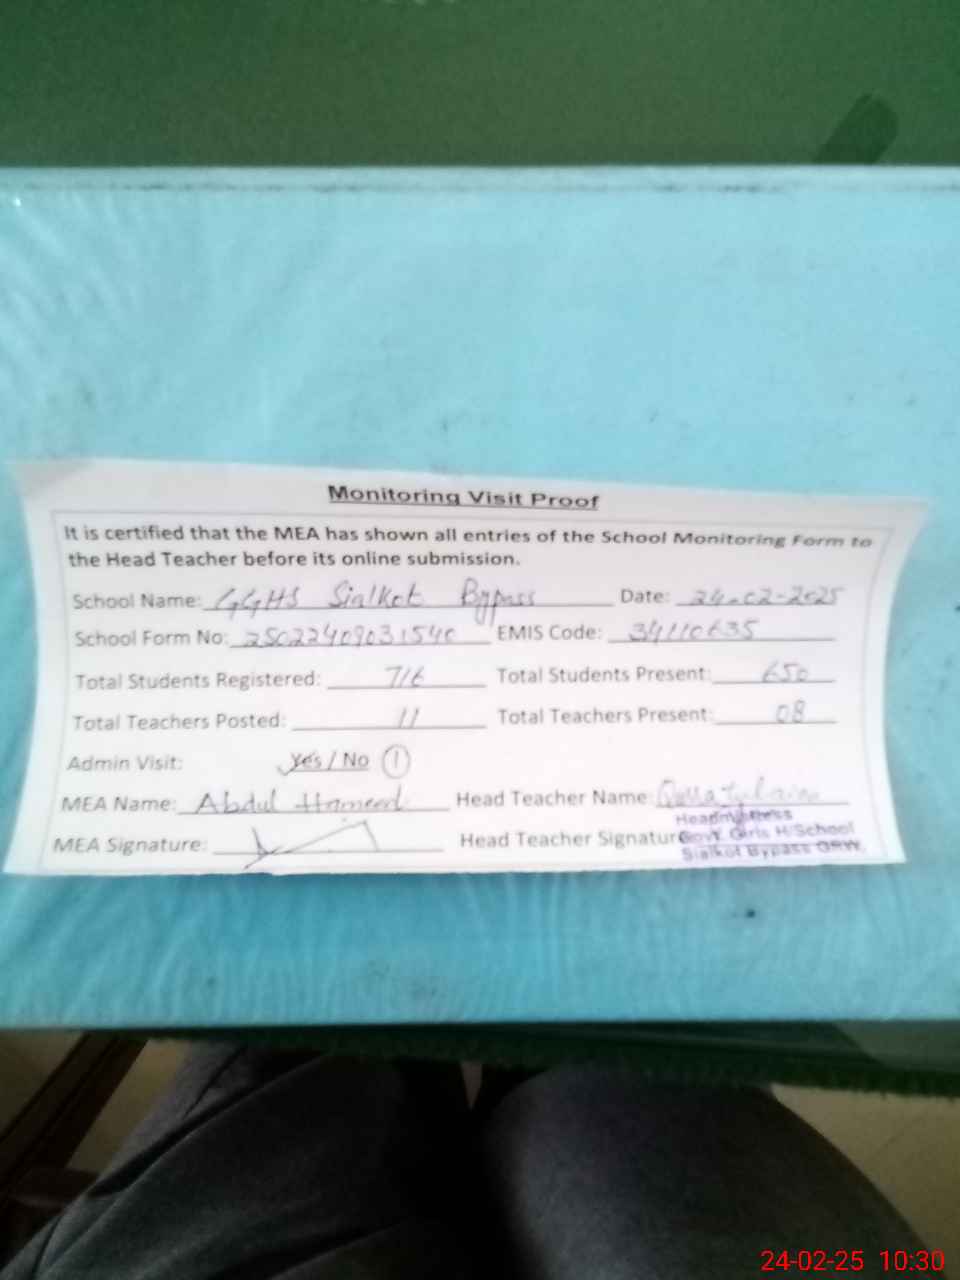 Monitoring Visit Proof
It is certified that the MEA has shown all entries of the School Monitoring Form to
the Head Teacher before its online submission.
School Name: GGHS Sialkot Bypass Date: 24-02-2025
School Form No: 25022409031540 EMIS Code: 34110635
Total Students Registered: 716 Total Students Present: 650
Total Teachers Posted: 11 Total Teachers Present: 08
Admin Visit: Yes / No 1
MEA Name: Abdul Hameed Head Teacher Name:
MEA Signature: Head Teacher Signature
Headmistress
Govt. Girls H/School
Sialkot Bypass GRW.
24-02-25 10:30